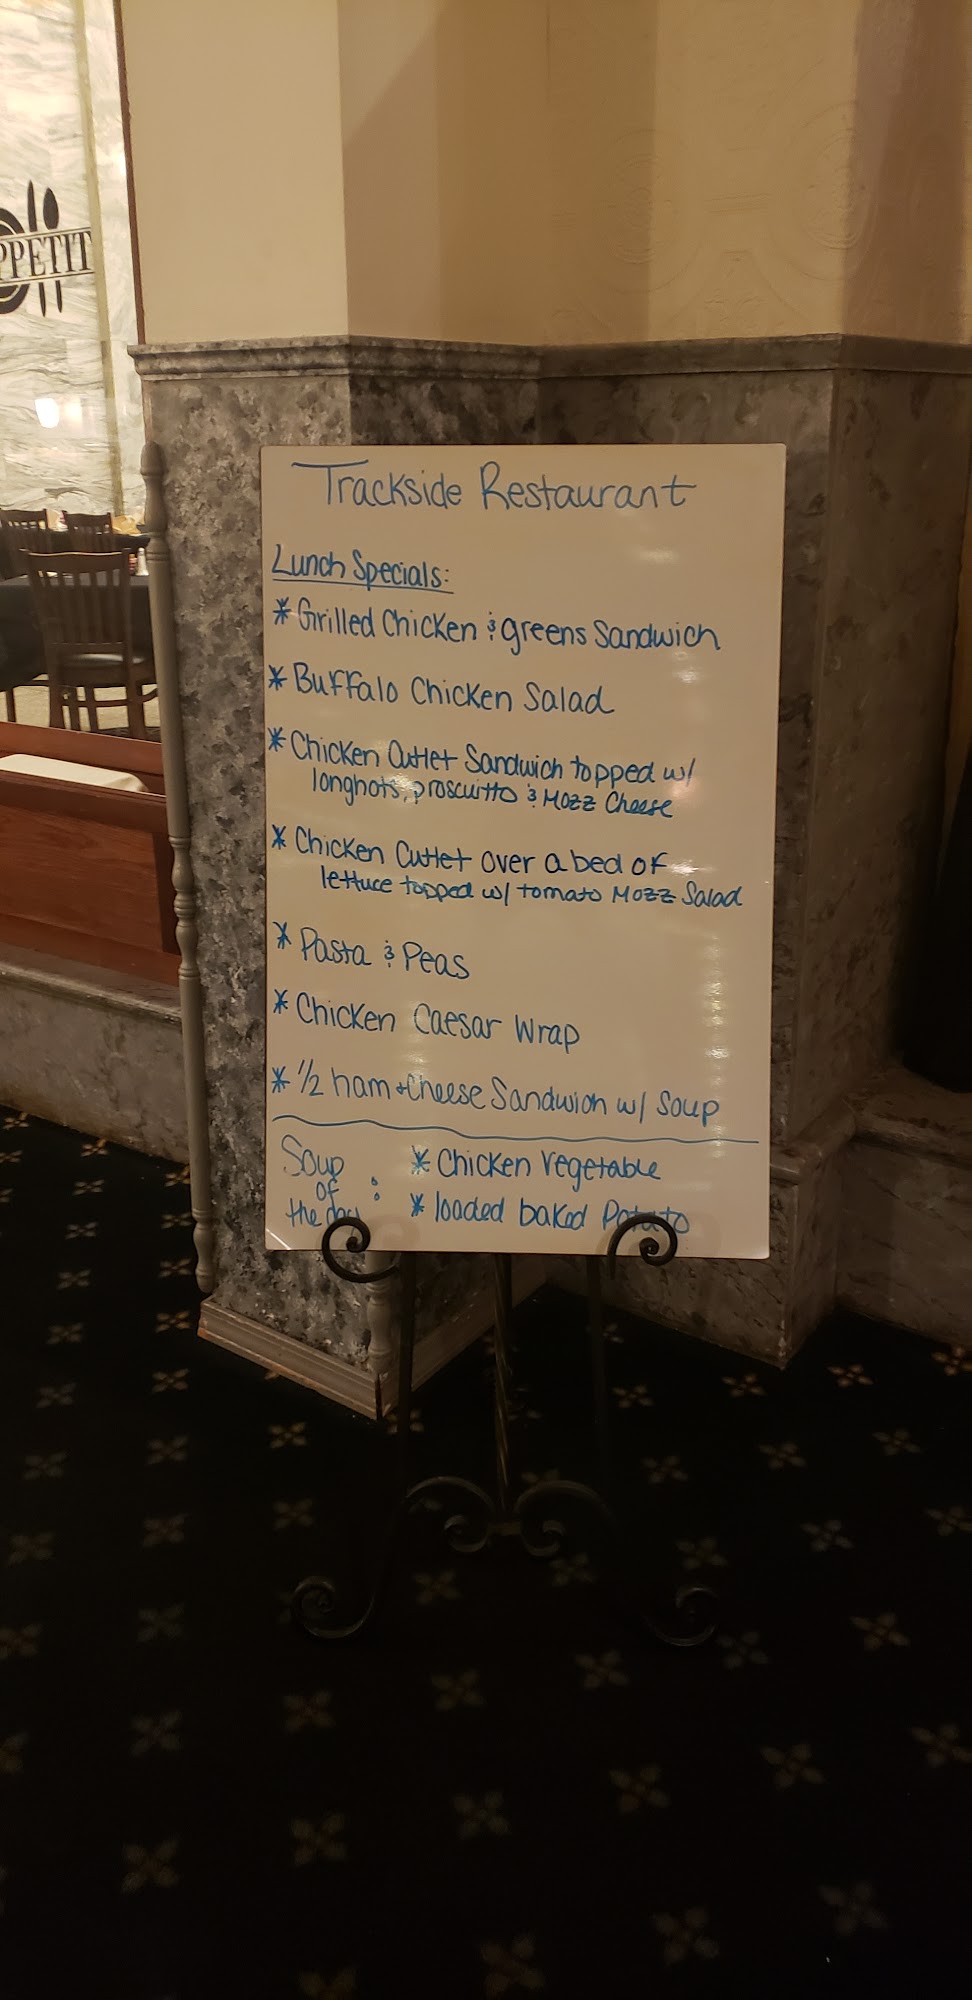 PPETIT
Trackside Restaurant
Lunch Specials:
* Grilled Chicken & greens Sandwich
* Buffalo Chicken Salad
* Chicken Cutlet Sandwich topped w/
longhots, proscuitto & Mozz Cheese
* Chicken Cutlet over a bed of
lettuce topped w/ tomato Mozz Salad
* Pasta & Peas
* Chicken Caesar Wrap
* 1/2 ham + Cheese Sandwich w/ Soup
Soup of the day :
* Chicken vegetable
* loaded baked Potato